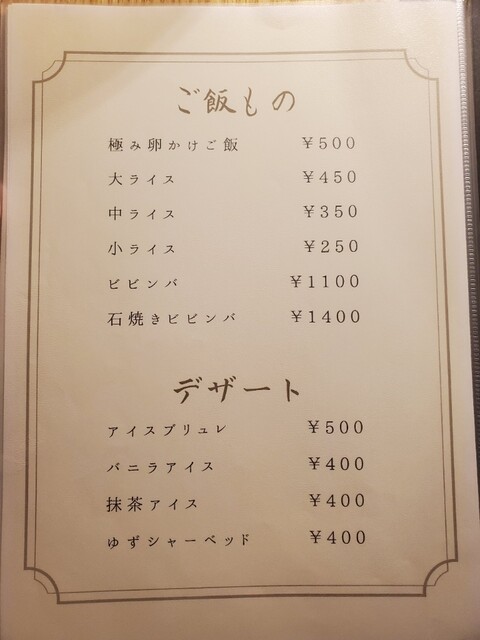 ご飯もの
極み卵かけご飯 ￥500
大ライス ￥450
中ライス ￥350
小ライス ￥250
ビビンバ ￥1100
石焼きビビンバ ￥1400
デザート
アイスブリュレ ￥500
バニラアイス ￥400
抹茶アイス ￥400
ゆずシャーベッド ￥400